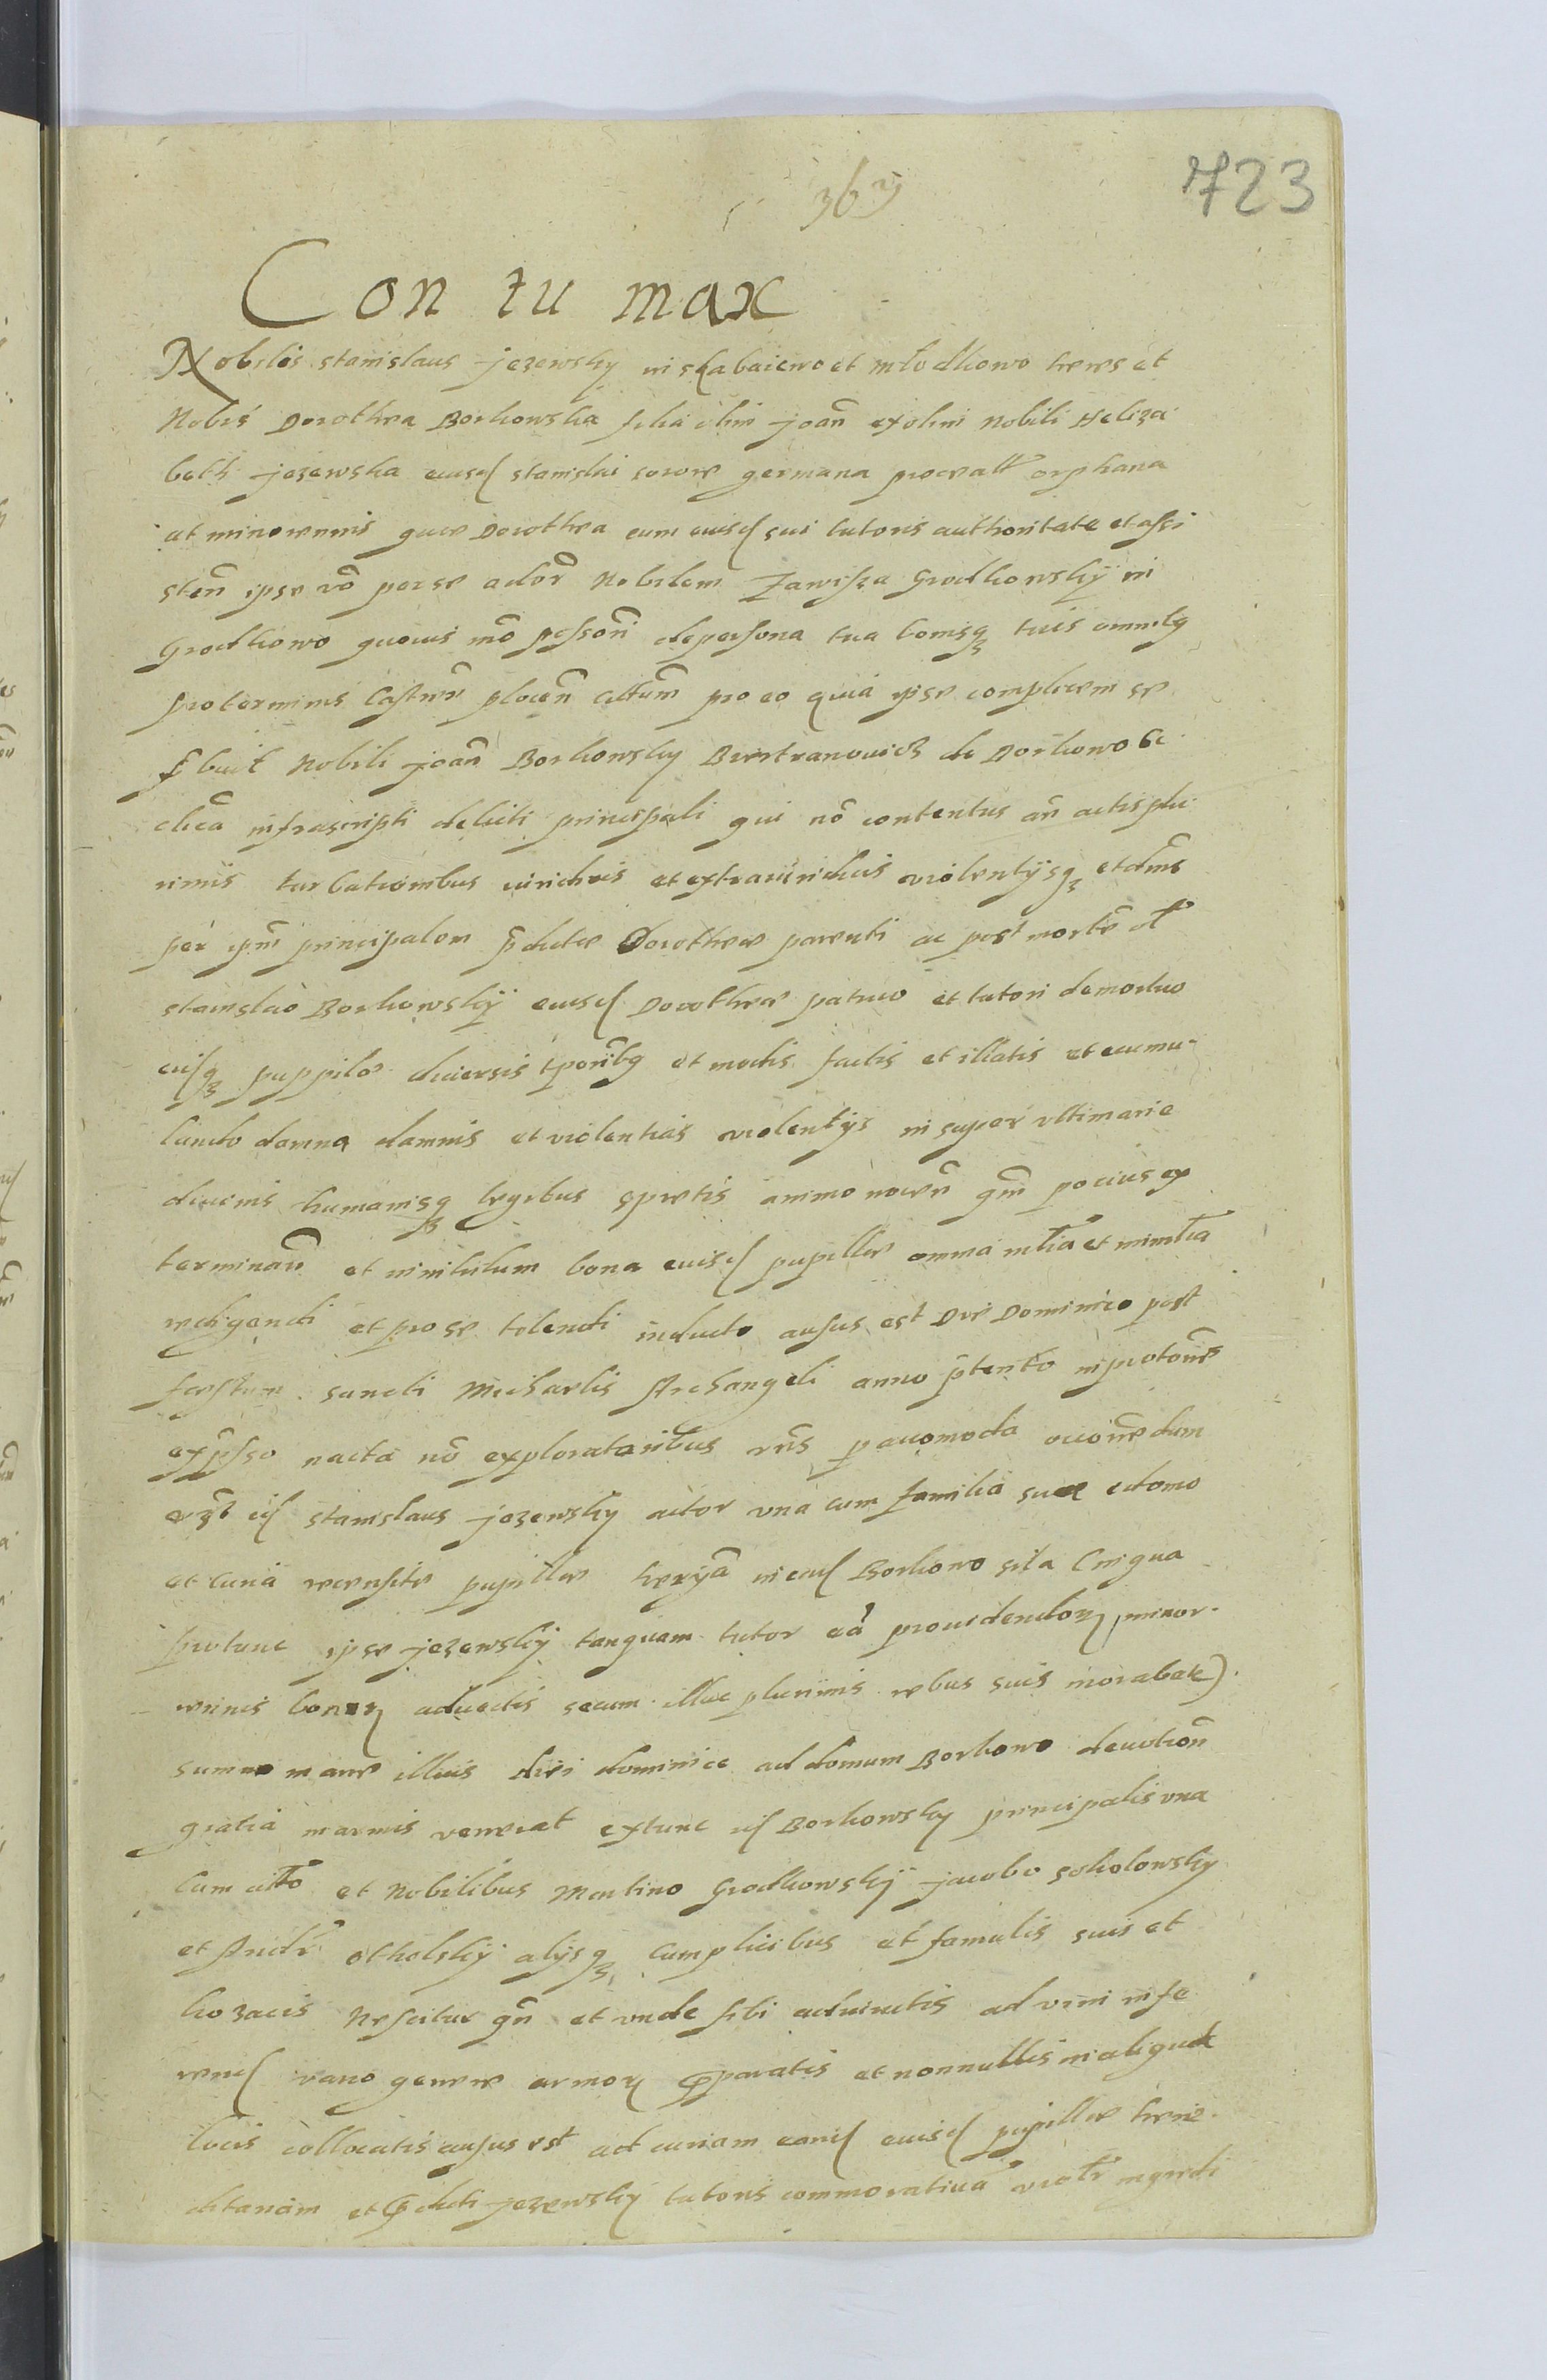 723
Con tu max
Nobilis stanislaus Jezewsky in skabaiewo et młodkowo heres et
Nobis Dorothea Borkowska filia olim Joan̄ ex olim Nobili Heliza
beth Jezewska eiusd stanislai sorore germana procreatt orphana
ut minorennis quae Dorothea cum eiusd sui tutoris authoritate et assi
sten̄ ipse vō per se actōr Nobilem Zawisza Grodkowskÿ in
Grodkowo quovis mō possōrē de persona tua bonisq tuis omnibq
pro terminis Castrēn plocēn cittūm pro eo quia ipse complicem se
p̄buit Nobili Joan̄ Borkowsky Biertranowicz de Borkowo &c
infrascripti delicti principali qui nō contentus an̄ actis plu
rimis turbationibus iuridicis et extraiuridicis violentijsq et dm̄s
per ipm̄ principalem p̄dictae Dorotheae parenti ac post mortē
stanislao Borkowskÿ eiusd Dorotheae patruo et tutori demortuo
eiusq puppilae diversis tporibq et modis factis et illatis et cumu-
lando damna damnis et violentias violentijs insuper ultimarie
divinis humanisq legibus spretis animo nocen̄ qm̄ pocius ex
terminan̄ et in nihilum bona eiusd pupillae omnia
redigendi et pro se tolendi inducto ausus est Die Dominico post
festum sancti Michaelis Archangeli anno p̄tento in protōne
exp̄sso nacta nō exploratoribus
id stanislaus Jezewsky actor una cum familia sua e domo
et curia recensitae pupillae in ead Borkowo sita (in qua
protunc ipse Jezewskÿ tanquam tutor eā providendor minor-
ennis bonor advectis secum illuc plurimis rebus suis morabat)
summo mane illius diei dominicae ad domum Borkowo devotion̄
gratia venerat extunc id Borkowsky principalis una
Cum citto et Nobilibus Martino Grodkowskÿ Jacobo sokolowsky
et Andr Otholskÿ alijsq Complicibus et famulis suis et
kozacis Nescitur qn̄ et unde sibi adiunctis ad vim infe
rend vario genere armor p̄paratis et nonnullis in aliqua
locis collocatis ausus est ad curiam eand eiusd pupillae here-
ditariam et p̄dicti Jezewsky tutoris commorativā ingredi